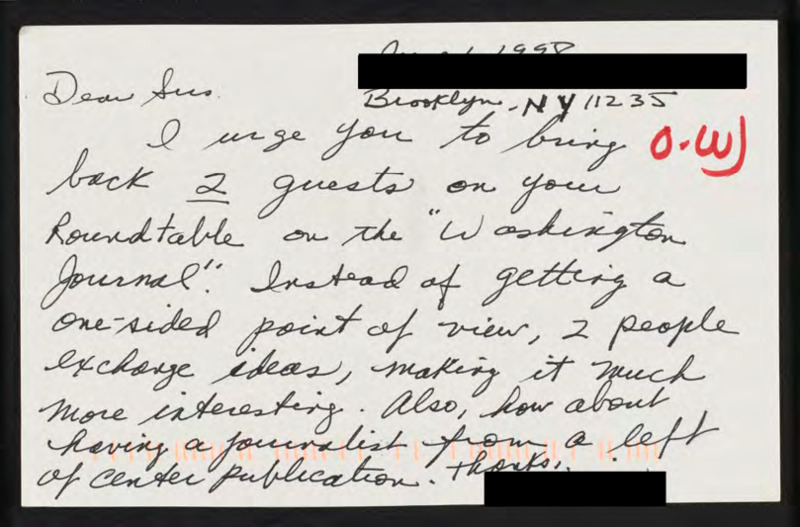 1998
Dear Sirs
Brooklyn, NY 11235
I urge you to bring
O.W)
back 2 guests on your
Roundtable on the "Washington
Journal". Instead of getting a
one-sided point of view, 2 people
exchange ideas, making it much
more interesting. Also, how about
having a journalist from a left
of center publication. Thanks,